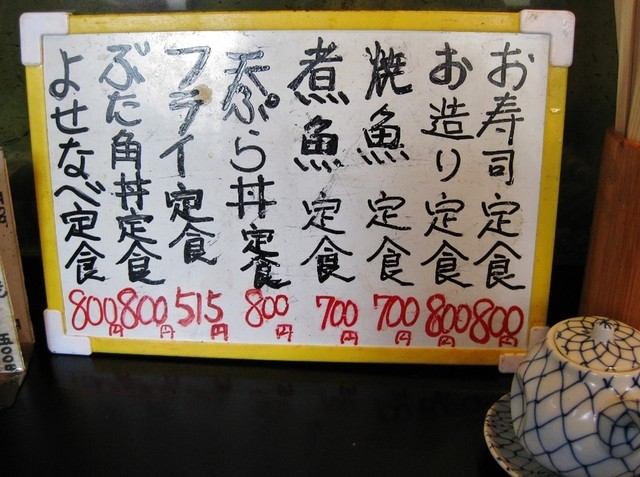 お寿司定食 800円
お造り定食 800円
焼魚定食 700円
煮魚定食 700円
天ぷら丼定食 800円
フライ定食 515円
ぶた角丼定食 800円
よせなべ定食 800円